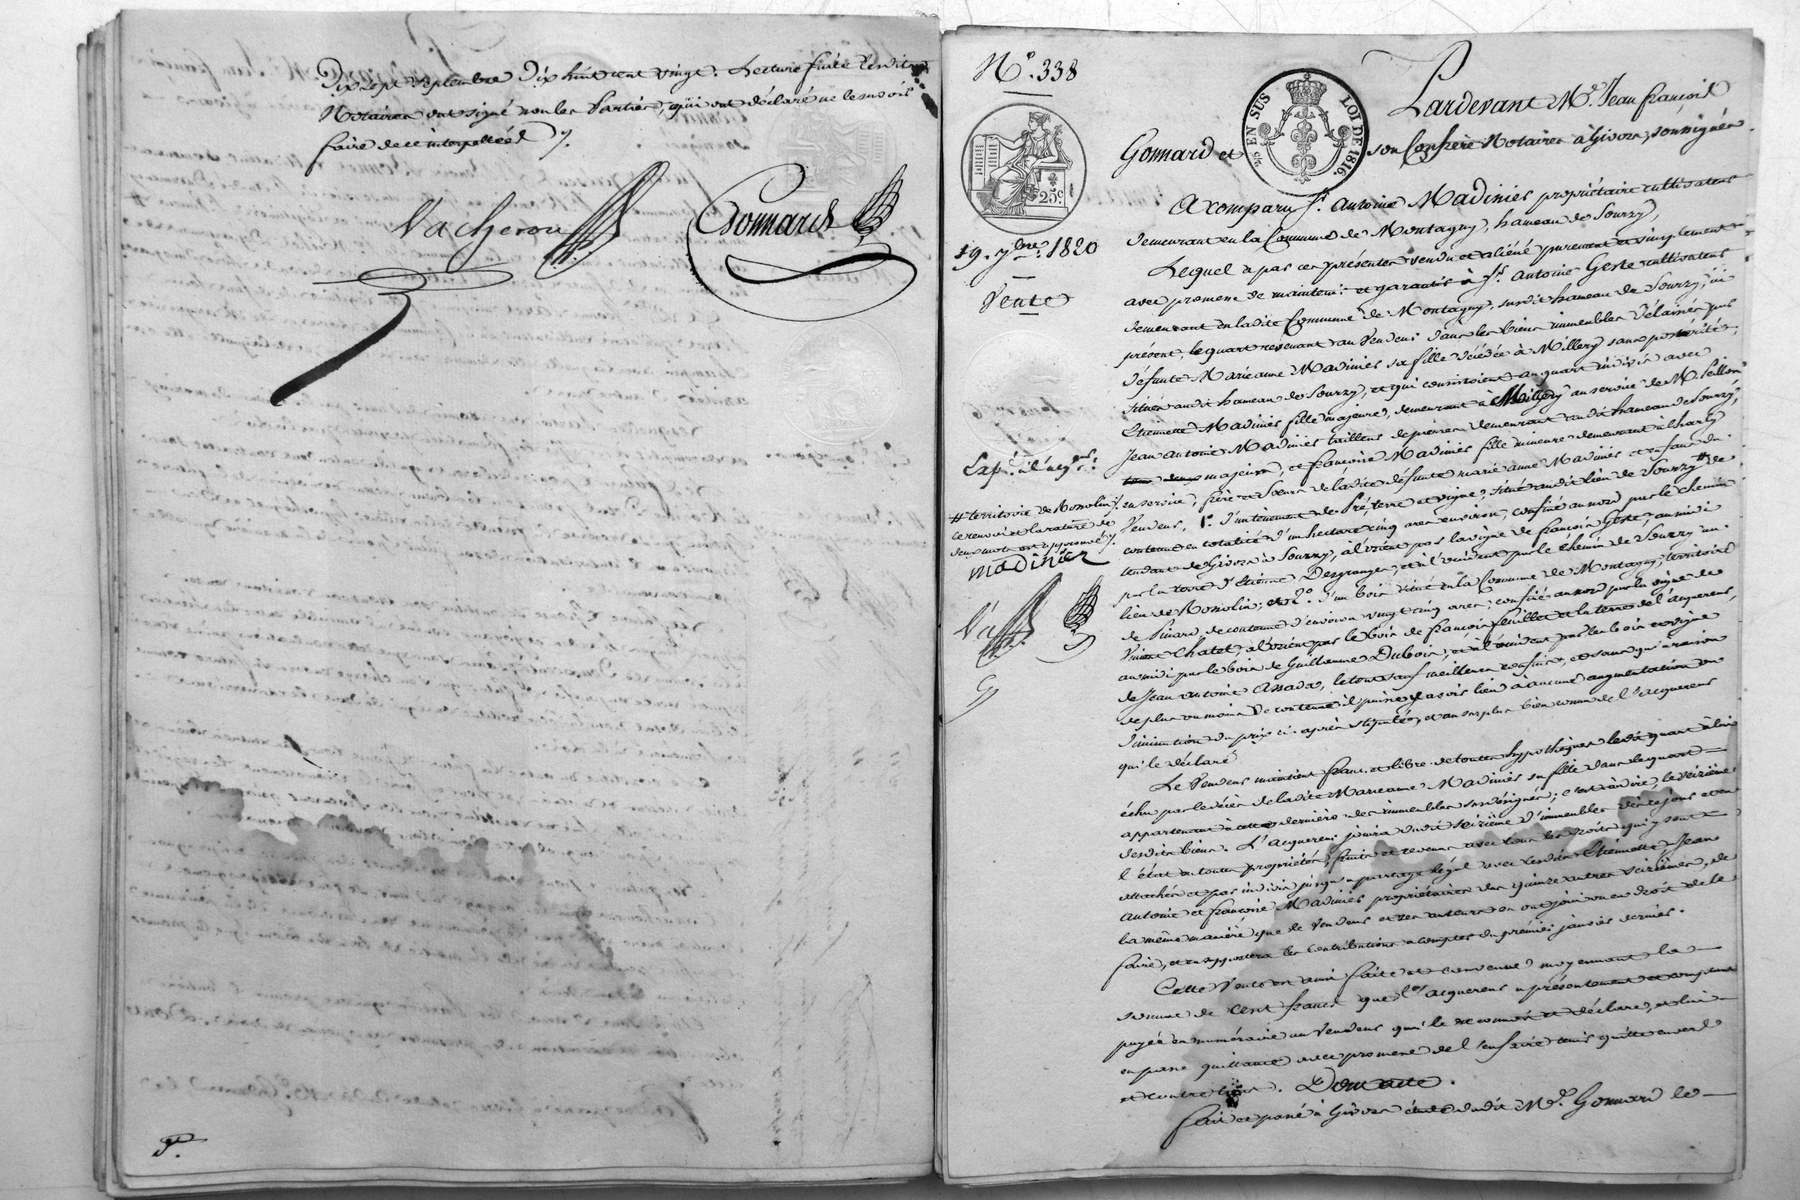 Dix sept Septembre Dix huit cent vingt. Lecture faite lesdits
Notaires ont signé non les Parties, qui ont déclaré ne le savoir
faire de ce interpellées
Vacheron
Gonnard
P.
N.° 338
25.c
EN SUS
LOI DE 1816.
19. 7bre. 1820
Vente
Pardevant M.e Jean françois
Gonnard et son Confrère Notaires à Givors, soussignés
A comparu S.r Antoine Madinier propriétaire cultivateur
demeurant en la Commune de Montagny, hameau de Sourzy,
Lequel a par ces présentes vendu et aliéné purement et simplement
avec promesse de maintenir et garantir à S.r Antoine Geste cultivateur
demeurant en ladite Commune de Montagny, susdit hameau de Sourzy, ici
présent, le quart revenant au Vendeur dans les biens immeubles délaissés par
défunte Marie anne Madinier sa fille décédée à Millery sans postérité,
situés audit hameau de Sourzy, et qui consistoient au quart indivis avec
Etiennette Madinier fille majeure, demeurant à Millery au service de M.
Jean Antoine Madinier tailleur de pierres demeurant audit hameau de Sourzy,
majeurs, et françoise Madinier fille mineure demeurant à Charly
en service, frère et Sœurs de ladite défunte marie anne Madinier et enfans du
Vendeur, 1.° d'un tenement de Pré, terre et vigne, situé audit lieu de Sourzy # de
contenue en totalité d'un hectare cinq ares environ, confiné au nord par le chemin
tendant de Givors à Sourzy, à l'orient par la vigne de françois Geste, au midi
par la terre d'Etienne Desgranges, et à l'occident par le chemin de Sourzy au
lieu de Rossolin; et 2.° d'un bois situé en la Commune de Montagny, territoire
de Pinard, de contenue d'environ vingt cinq ares, confiné au nord par la vigne de
Vincent Chatel, à l'orient par le bois de françois feuillet et la terre de l'acquereur,
au midi par le bois de Guillaume Dubois, et à l'occident par les bois et vigne
de Jean antoine Assada, le tout sauf meilleurs confins, et sans qu'à raison
de plus ou moins de contenue il puisse y avoir lieu à aucune augmentation ou
diminution du prix ci-après stipulé, et au surplus bien connu de l'acquereur
qui le déclare
Le Vendeur maintient franc et libre de toutes hypothèques ledit quart à lui
échu par le décès de ladite Marie anne Madinier sa fille dans le quart
appartenant à cette dernière des immeubles susdésignés; c'est-à-dire, le seizième
desdits biens. L'acquereur jouira dudit seizième d'immeubles dès ce jour et en
l'état en toute propriété, fruits et revenus avec tous les droits qui y sont
attachés et par indivis jusqu'à partage légal avec lesdits Etiennette, Jean
Antoine et françoise Madinier propriétaires des quinze autres seizièmes, de
la même manière que le Vendeur et ses auteurs en ont joui ou eu droit de le
faire, et en supportera les contributions à compter du premier janvier dernier.
Cette Vente est ainsi faite et convenue moyennant la
somme de Cent francs que l'acquereur a présentement et comptant
payée en numéraire au Vendeur qui le reconnoît et déclare, et lui
en passe quittance avec promesse de l'en faire tenir quitte envers
et contre tous. Dont acte.
Fait et passé à Givors étude dudit M.e Gonnard le
# territoire de Rossolin
ce renvoi et la rature de
deux mots est approuvé
madinier
Va
G